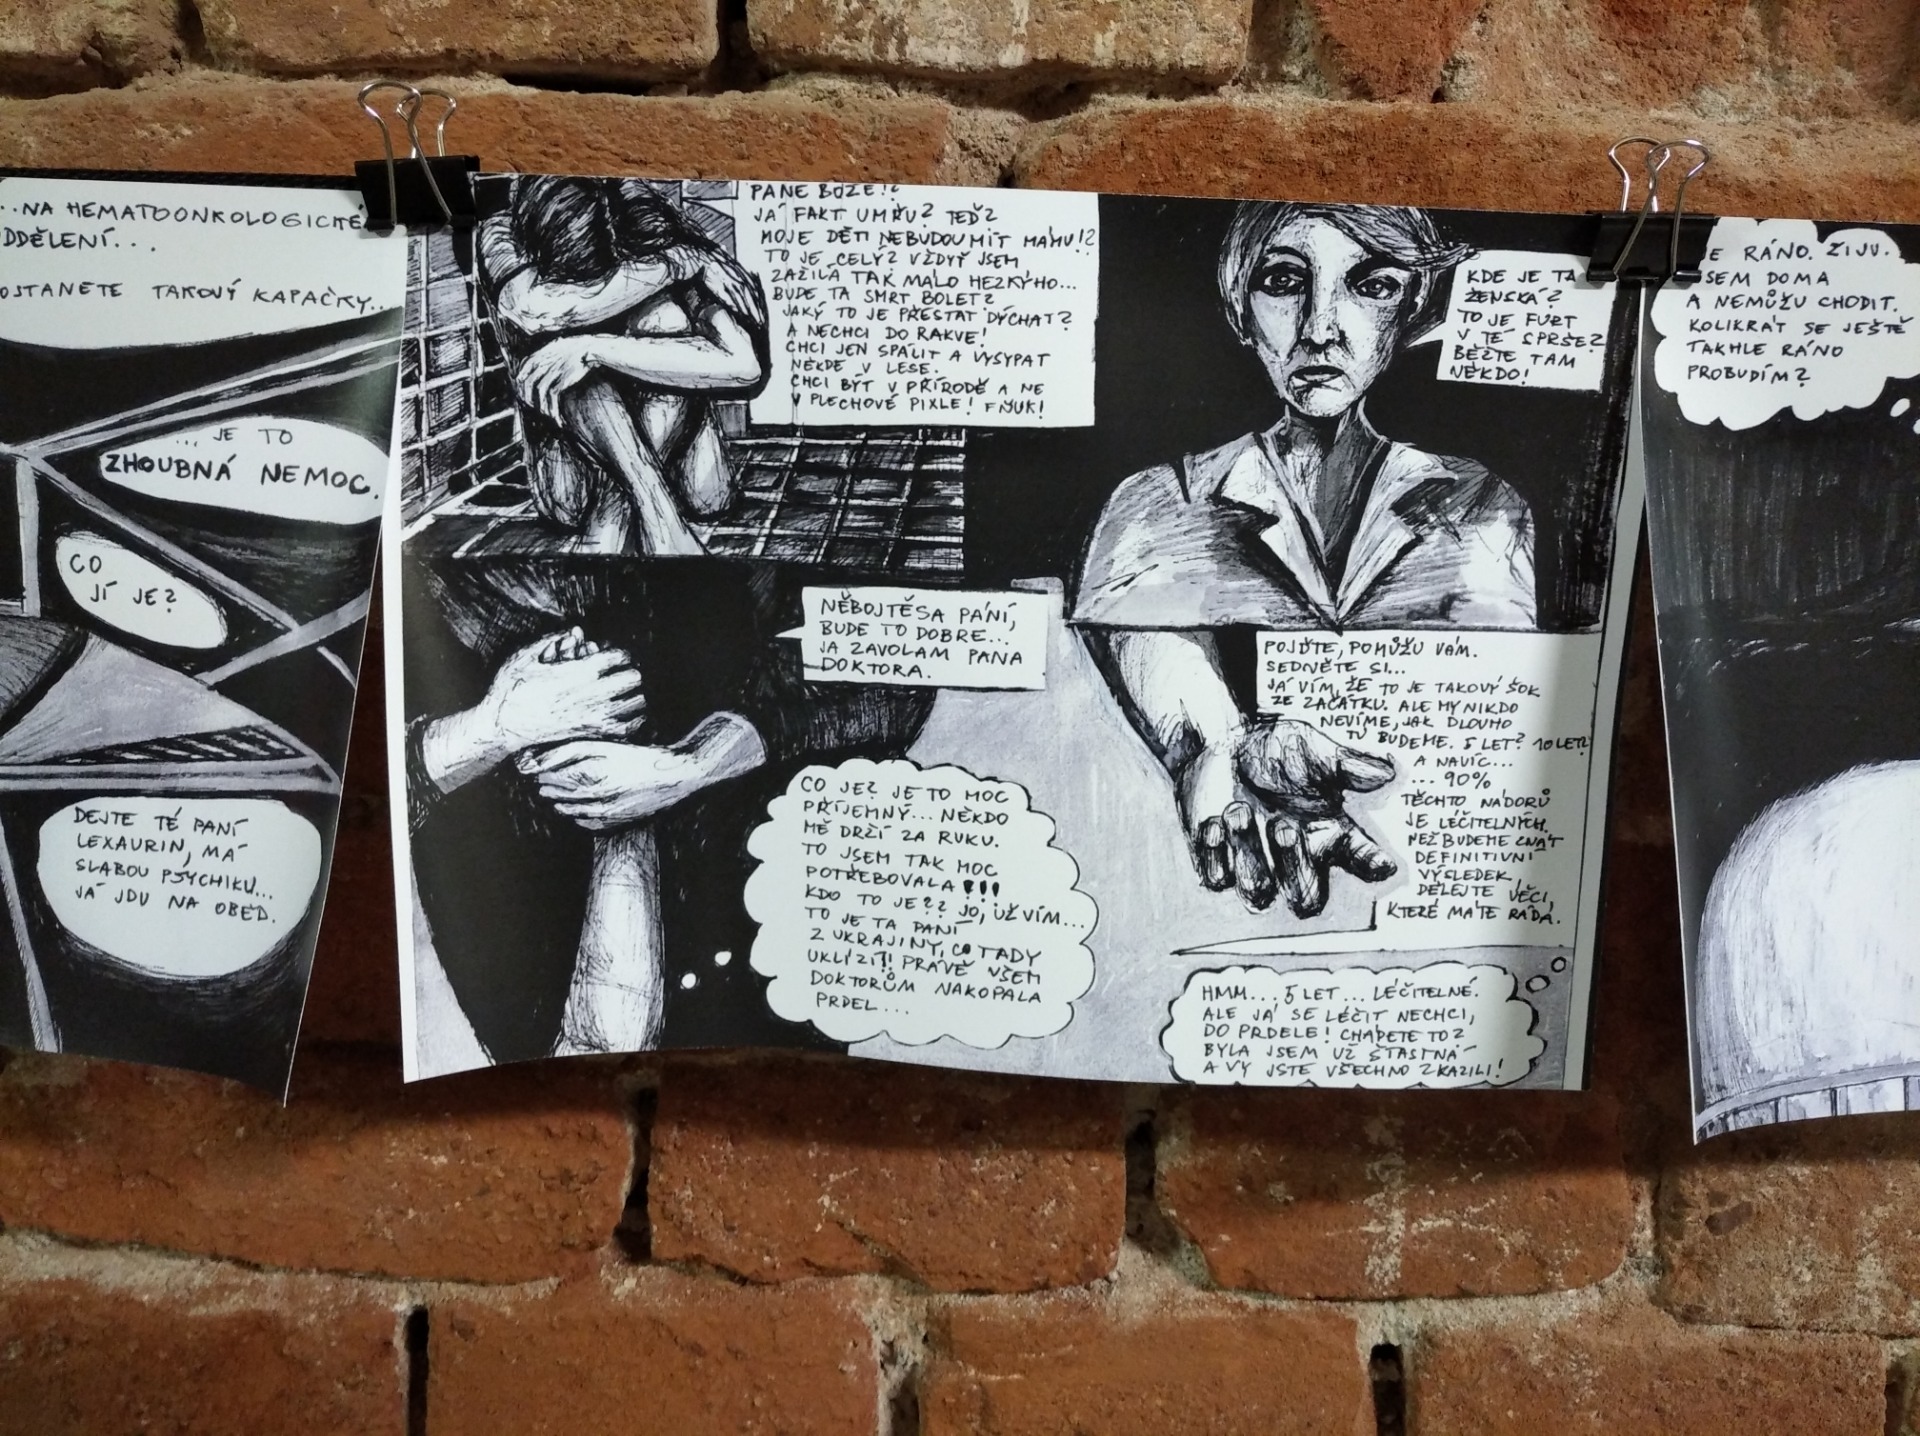 ..NA HEMATOONKOLOGICKÉ
DDĚLENÍ...
OSTANETE TAKOVÝ KAPAČKY...
... JE TO
ZHOUBNÁ NEMOC.
CO
JÍ JE?
DEJTE TÉ PANÍ
LEXAURIN, MÁ
SLABOU PSYCHIKU...
JÁ JDU NA OBĚD.
PANE BOŽE!?
JÁ FAKT UMŘU? TEĎ?
MOJE DĚTI NEBUDOU MÍT MÁMU!?
TO JE CELÝ? VŽDYŤ JSEM
ZAŽILA TAK MÁLO HEZKÝHO...
BUDE TA SMRT BOLET?
JAKÝ TO JE PŘESTAT DÝCHAT?
A NECHCI DO RAKVE!
CHCI JEN SPÁLIT A VYSYPAT
NĚKDE V LESE.
CHCI BÝT V PŘÍRODĚ A NE
V PLECHOVÉ PIXLE! FŇUK!
KDE JE TA
ŽENSKÁ?
TO JE FURT
V TÉ SPRŠE?
BĚŽTE TAM
NĚKDO!
NĚBOJTĚSA PÁNÍ,
BUDE TO DOBRE...
JA ZAVOLAM PANA
DOKTORA.
CO JE? JE TO MOC
PŘÍJEMNÝ... NĚKDO
MĚ DRŽÍ ZA RUKU.
TO JSEM TAK MOC
POTŘEBOVALA!!!
KDO TO JE?? JO, UŽ VÍM...
TO JE TA PANÍ
Z UKRAJINY, CO TADY
UKLÍZÍ!! PRÁVĚ VŠEM
DOKTORŮM NAKOPALA
PRDEL...
POJĎTE, POMŮŽU VÁM.
SEDNĚTE SI...
JÁ VÍM, ŽE TO JE TAKOVÝ ŠOK
ZE ZAČÁTKU. ALE MY NIKDO
NEVÍME, JAK DLOUHO
TU BUDEME. 5 LET? 10 LET?
A NAVÍC...
... 90%
TĚCHTO NÁDORŮ
JE LÉČITELNÝCH.
NEŽ BUDEME ZNÁT
DEFINITIVNÍ
VÝSLEDEK,
DĚLEJTE VĚCI,
KTERÉ MÁTE RÁDA.
HMM... 5 LET... LÉČITELNÉ.
ALE JÁ SE LÉČIT NECHCI,
DO PRDELE! CHÁPETE TO?
BYLA JSEM UŽ ŠŤASTNÁ
A VY JSTE VŠECHNO ZKAZILI!
JE RÁNO. ŽIJU.
JSEM DOMA
A NEMŮŽU CHODIT.
KOLIKRÁT SE JEŠTĚ
TAKHLE RÁNO
PROBUDÍM?